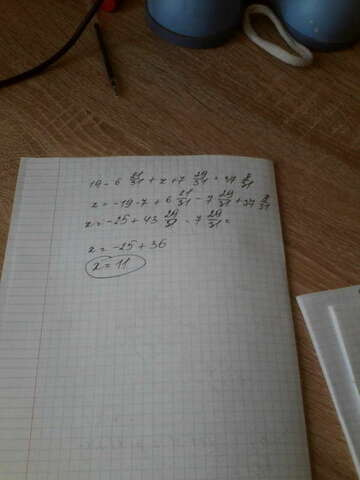 19 - 6 21/31 + x + 7 29/31 = 37 8/31
x = -19 - 7 + 6 21/31 - 7 29/31 + 37 8/31
x = -25 + 43 29/31 - 7 29/31 =
x = -25 + 36
x = 11